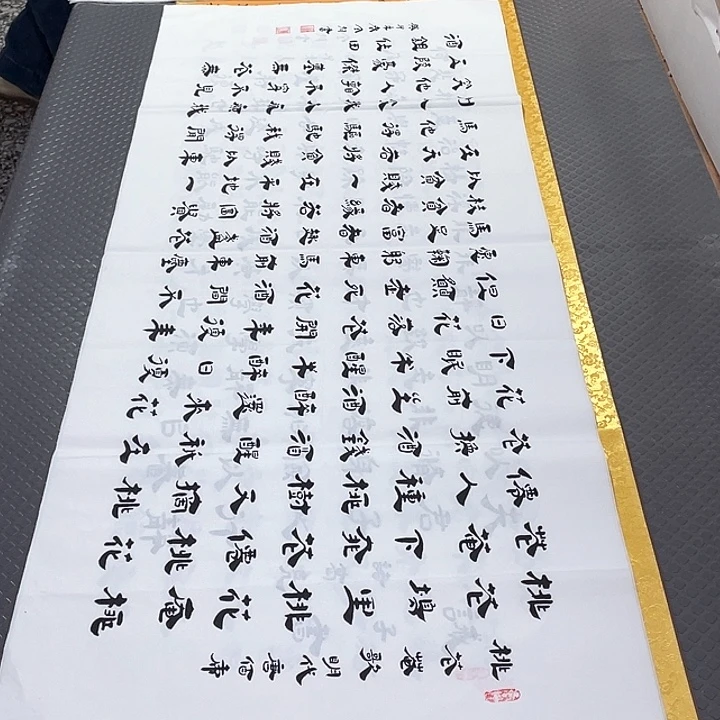 桃花菴歌 明代 唐伯虎
桃花塢里桃花庵桃
花菴下桃花僊桃花
僊人種桃樹又摘桃
花換酒錢酒醒只在
花前坐酒醉還來花
下眠半醒半醉日復
日花落花開年復年
但願老死花酒間不
願鞠躬車馬前車塵
馬足富者趣酒盞花
枝貧者緣若將富貴
比貧賤一在平地一
在天若將貧賤比車
馬他得驅馳我得閒
人笑我
笑他人看不穿不見
五陵豪傑墓無花無
酒鋤作田